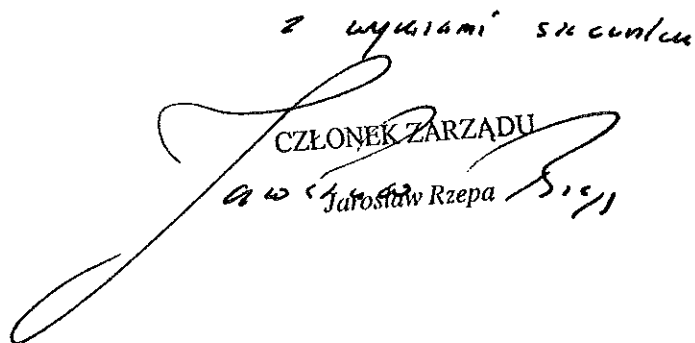 z wyrazami szacunku
CZŁONEK ZARZĄDU
Jarosław Rzepa